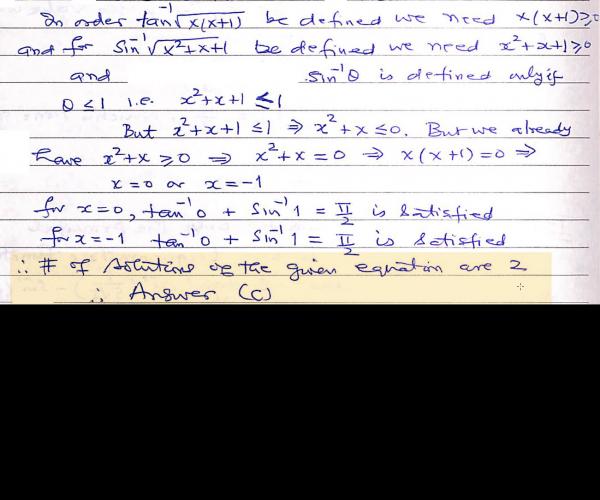 In order tan⁻¹√x(x+1) be defined we need x(x+1)≥0
and for sin⁻¹√x²+x+1 be defined we need x²+x+1≥0
and sin⁻¹θ is defined only if
θ ≤ 1 i.e. x²+x+1 ≤ 1
But x²+x+1 ≤ 1 ⇒ x²+x ≤ 0. But we already
have x²+x ≥ 0 ⇒ x²+x = 0 ⇒ x(x+1) = 0 ⇒
x = 0 or x = -1
for x=0, tan⁻¹0 + sin⁻¹1 = π/2 is satisfied
for x=-1 tan⁻¹0 + sin⁻¹1 = π/2 is satisfied
∴ # of solutions of the given equation are 2
∴ Answer (c)